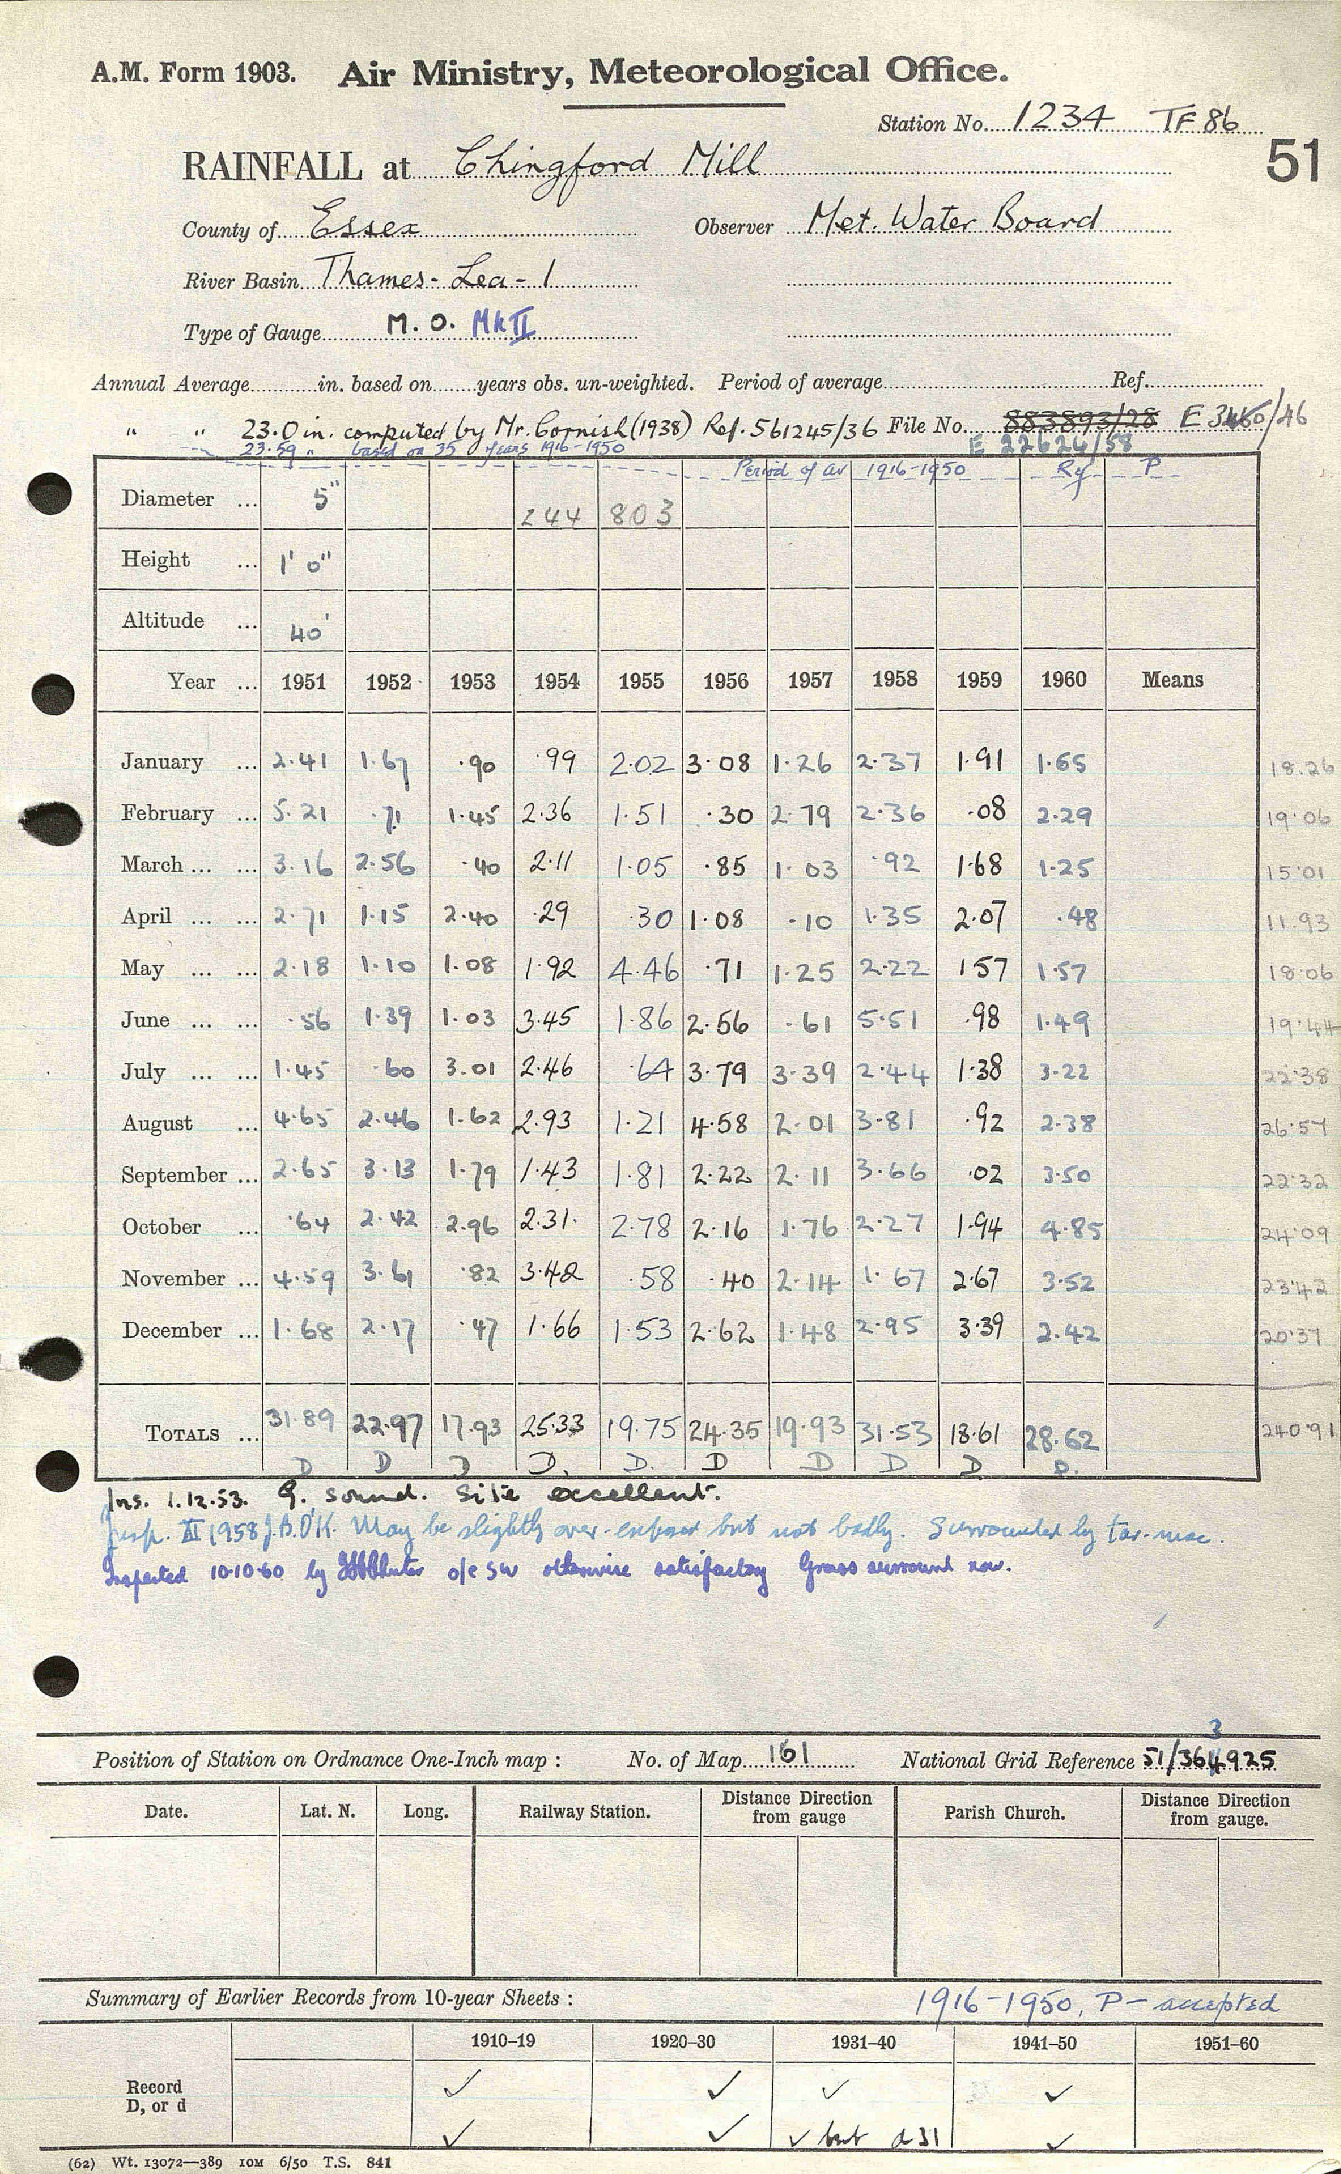 A.M. Form 1903. Air Ministry, Meteorological Office.
Station No. 1234 TF 86
51
RAINFALL at Chingford Mill
County of Essex Observer Met. Water Board
River Basin Thames - Lea - 1
Type of Gauge M.O. Mk II
Annual Average in. based on years obs. un-weighted. Period of average Ref.
" " 23.0 in. computed by Mr. Cornish (1938) Ref. 561245/36 File No. 883893/28 E 3460/46
23.59 " based on 35 years 1916-1950 E 22624/58
Period of av 1916-1950 Ry P
Diameter ... 5" 244 803
Height ... 1' 0"
Altitude ... 40'
Year ... 1951 1952 1953 1954 1955 1956 1957 1958 1959 1960 Means
January ... 2.41 1.67 .90 .99 2.02 3.08 1.26 2.37 1.91 1.65 18.26
February ... 5.21 .71 1.45 2.36 1.51 .30 2.79 2.36 .08 2.29 19.06
March ... ... 3.16 2.56 .40 2.11 1.05 .85 1.03 .92 1.68 1.25 15.01
April ... ... 2.71 1.15 2.40 .29 .30 1.08 .10 1.35 2.07 .48 11.93
May ... ... 2.18 1.10 1.08 1.92 4.46 .71 1.25 2.22 1 57 1.57 18.06
June ... ... .56 1.39 1.03 3.45 1.86 2.56 .61 5.51 .98 1.49 19.44
July ... ... 1.45 .60 3.01 2.46 .64 3.79 3.39 2.44 1.38 3.22 22.38
August ... 4.65 2.46 1.62 2.93 1.21 4.58 2.01 3.81 .92 2.38 26.57
September ... 2.65 3.13 1.79 1.43 1.81 2.22 2.11 3.66 .02 3.50 22.32
October ... .64 2.42 2.96 2.31. 2.78 2.16 1.76 2.27 1.94 4.85 24.09
November ... 4.59 3.61 .82 3.42 .58 .40 2.14 1.67 2.67 3.52 23.42
December ... 1.68 2.17 .47 1.66 1.53 2.62 1.48 2.95 3.39 2.42 20.37
TOTALS ... 31.89 22.97 17.93 25.33 19.75 24.35 19.93 31.53 18.61 28.62 240.91
D D D D. D. D D D D D.
Ins. 1.12.53. G. sound. Site excellent.
Insp. III 1958 J.B. O'K. May be slightly over-exposed but not badly. Surrounded by tar-mac.
Inspected 10.10.60 by o/e SW otherwise satisfactory Grass surround now.
3
Position of Station on Ordnance One-Inch map : No. of Map 161 National Grid Reference 51/364925
Date. Lat. N. Long. Railway Station. Distance Direction from gauge Parish Church. Distance Direction from gauge.
Summary of Earlier Records from 10-year Sheets : 1916-1950, P - accepted
1910–19 1920–30 1931–40 1941–50 1951–60
Record ✓ ✓ ✓ ✓
D, or d
✓ ✓ ✓ but d 31 ✓
(62) Wt. 13072—389 10M 6/50 T.S. 841